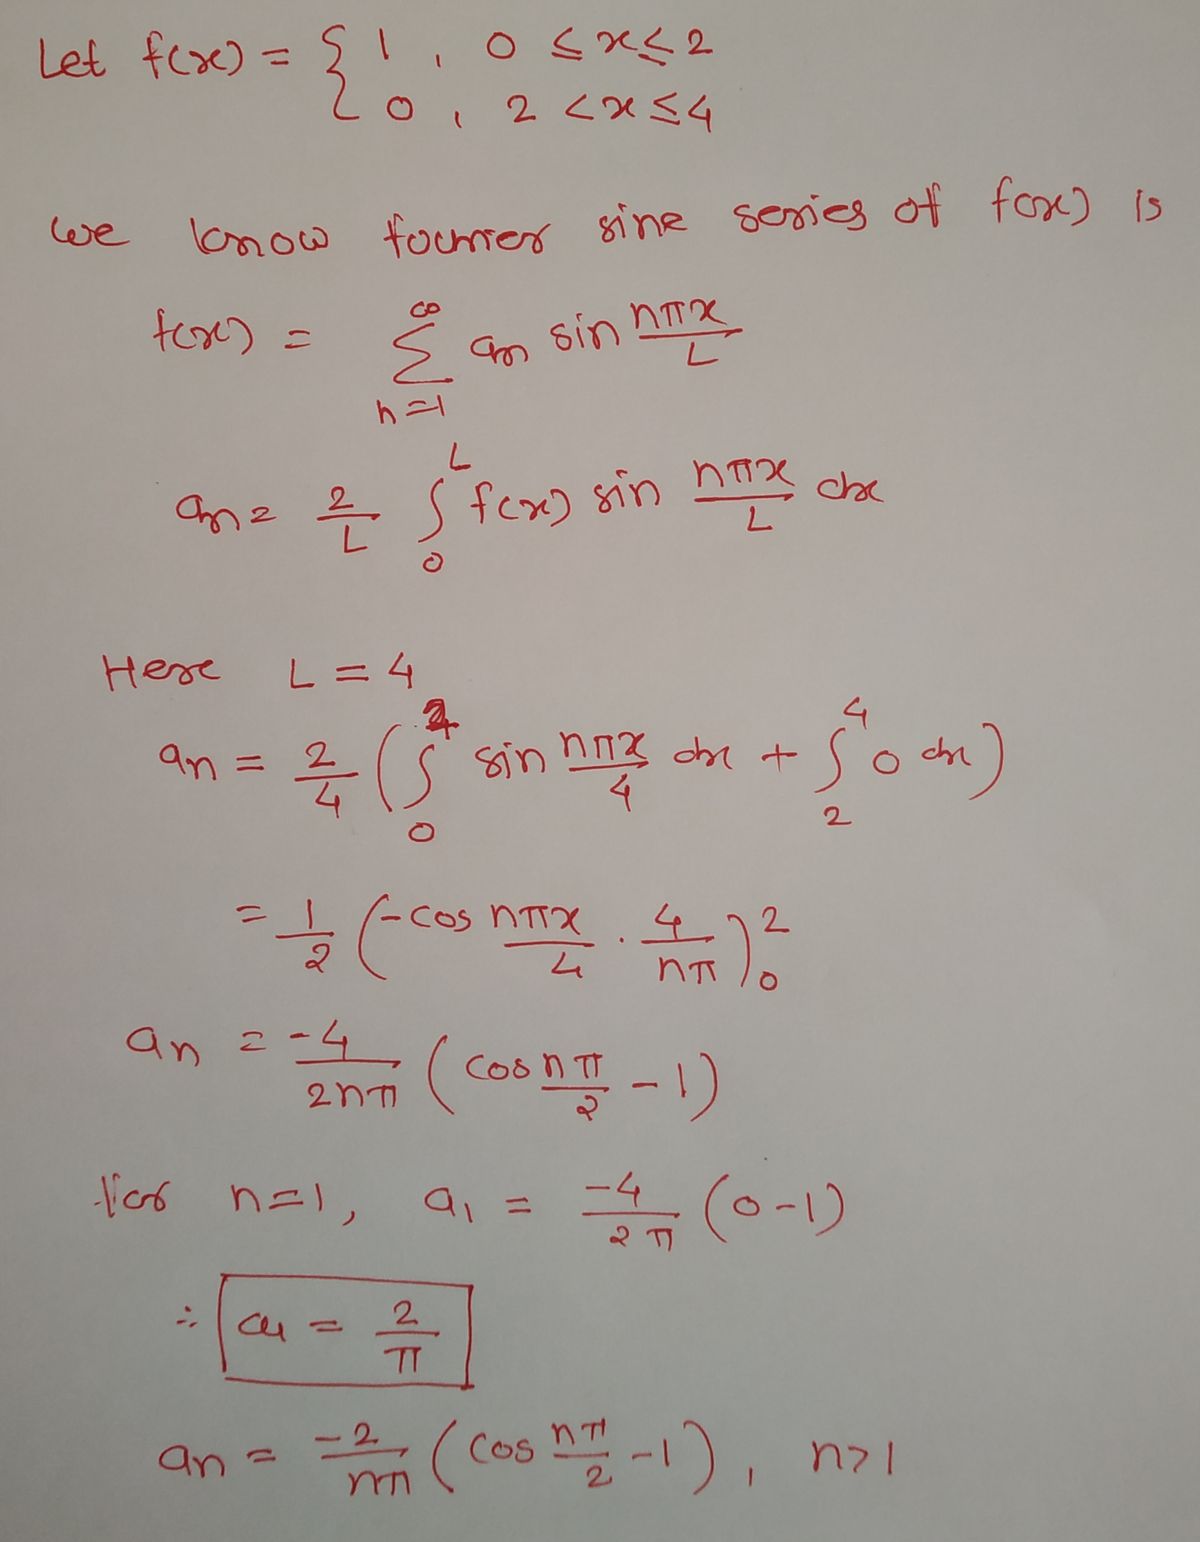 Let f(x) = { 1 , 0 ≤ x ≤ 2
0 , 2 < x ≤ 4
we know fourier sine series of f(x) is
f(x) = ∞ Σ n=1 an sin nπx/L
an = 2/L ∫₀^L f(x) sin nπx/L dx
Here L = 4
an = 2/4 ( ∫₀² sin nπx/4 dx + ∫₂⁴ 0 dx )
= 1/2 ( -cos nπx/4 · 4/nπ )₀²
an = -4/2nπ ( cos nπ/2 - 1 )
For n=1, a₁ = -4/2π (0-1)
∴ a₁ = 2/π
an = -2/nπ ( cos nπ/2 - 1 ), n>1